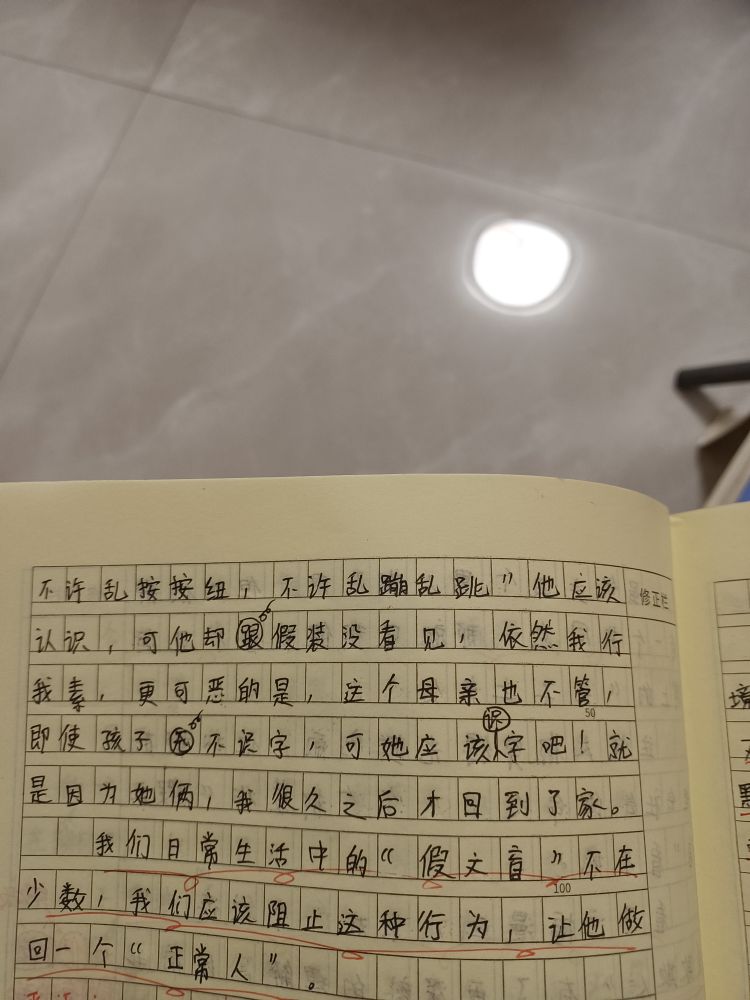 不许乱按按纽，不许乱蹦乱跳”他应该
修正栏
认识，可他却假装没看见，依然我行
我素，更可恶的是，这个母亲也不管，
50
即使孩子不识字，可她应该识字吧！就
是因为她俩，我很久之后才回到了家。
我们日常生活中的“假文盲”不在
100
少数，我们应该阻止这种行为，让他做
回一个“正常人”。